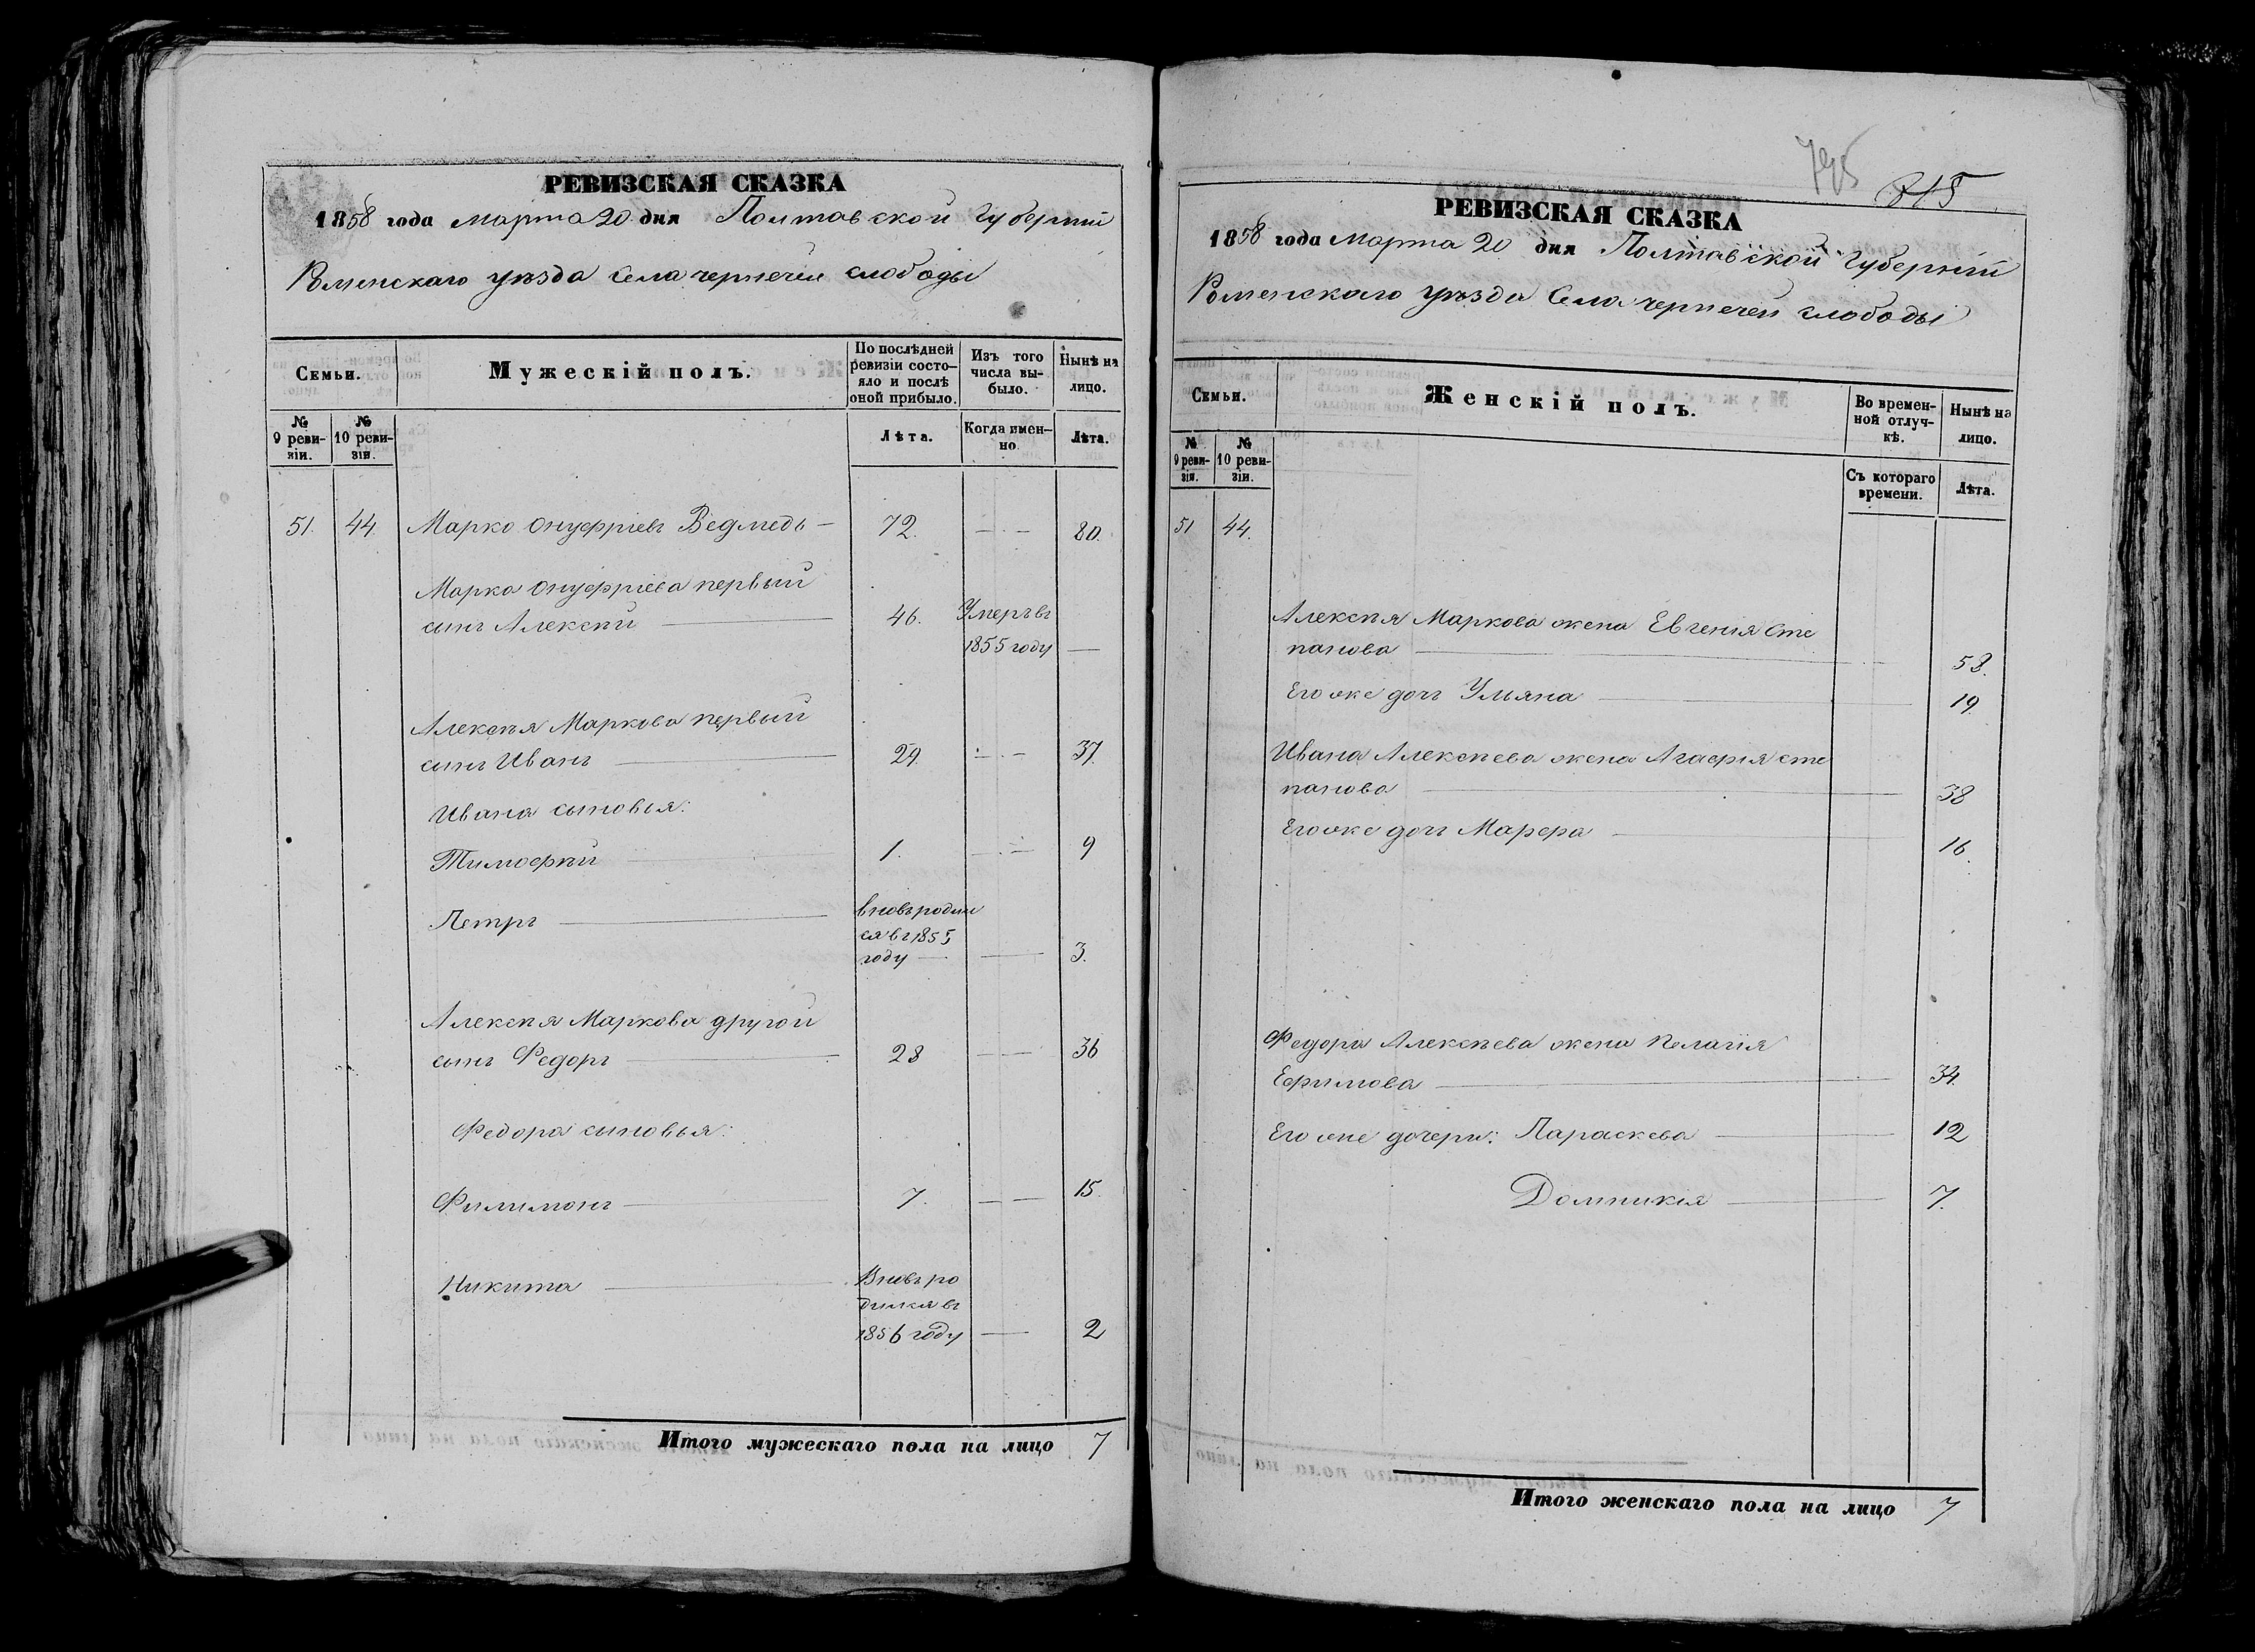 РЕВИЗСКАЯ СКАЗКА
1858 года марта 20 дня Полтавской Губерніи
Роменскаго уѣзда Села чернечей слободы
Семьи.
Мужескій полъ.
По послѣдней ревизіи состояло и послѣ оной прибыло.
Изъ того числа выбыло.
Нынѣ на лицо.
№ 9 ревизіи.
№ 10 ревизіи.
Лѣта.
Когда именно.
Лѣта.
51. 44. Марко Онуфріевъ Ведмедь — 72. — . — 80.
Марка Онуфріева первый
сынъ Алексѣй — 46. Умеръ въ
1855 году —
Алексѣя Маркова первый
сынъ Иванъ — 29. — . — 37.
Ивана сыновья:
Тимофѣй 1. — . — 9
Петръ — вновь родил
ся въ 1855
году — — 3.
Алексѣя Маркова другой
сынъ Федоръ — 28 — — 36
Федора сыновья:
Филимонъ — 7. — — 15.
Никита — Вновь ро
дился въ
1856 году — 2
Итого мужескаго пола на лицо 7
795 815
РЕВИЗСКАЯ СКАЗКА
1858 года Марта 20 дня Полтавской Губерніи
Роменскаго уѣзда Села чернечей слободы
Семьи.
Женскій полъ.
Во временной отлучкѣ.
Нынѣ на лицо.
№ 9 ревизіи.
№ 10 ревизіи.
Съ котораго времени.
Лѣта.
51 44.
Алексѣя Маркова жена Евгенія Сте
панова — 58.
Его же дочь Ульяна — 19.
Ивана Алексѣева жена Агафія сте
панова — 38
Его же дочь Марфа — 16.
Федора Алексѣева жена Пелагія
Ефимова — 34.
Его же дочери: Параскева — 12
Домникія — 7.
Итого женскаго пола на лицо 7